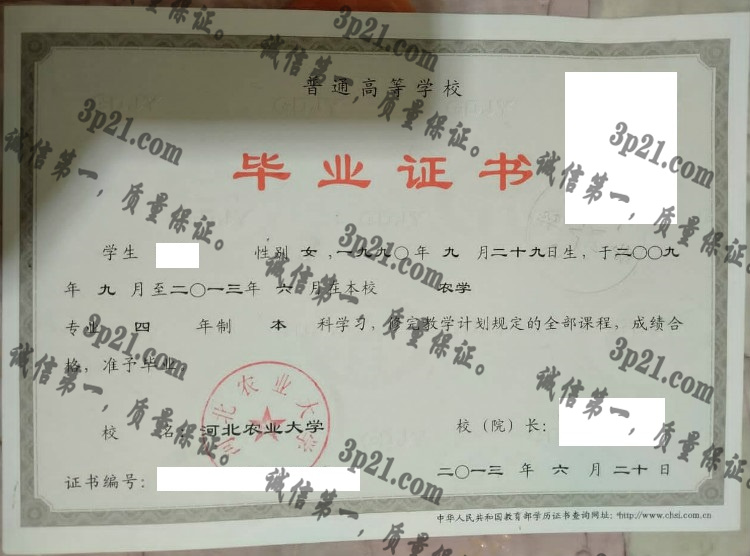 普通高等学校
毕业证书
学生 性别 女 ,一九九〇年 九 月二十九日生，于二〇〇九
年 九 月至二〇一三年 六 月在本校 农学
专业 四 年制 本 科学习，修完教学计划规定的全部课程，成绩合
格，准予毕业
河北农业大学
校 名：河北农业大学 校（院）长：
证书编号： 二〇一三 年 六 月 二十 日
中华人民共和国教育部学历证书查询网址：http://www.chsi.com.cn
3p21.com
诚信第一，质量保证。
3p21.com
诚信第一，质量保证。
3p21.com
诚信第一，质量保证。
3p21.com
诚信第一，质量保证。
3p21.com
诚信第一，质量保证。
3p21.com
诚信第一，质量保证。
3p21.com
诚信第一，质量保证。
3p21.com
诚信第一，质量保证。
3p21.com
诚信第一，质量保证。